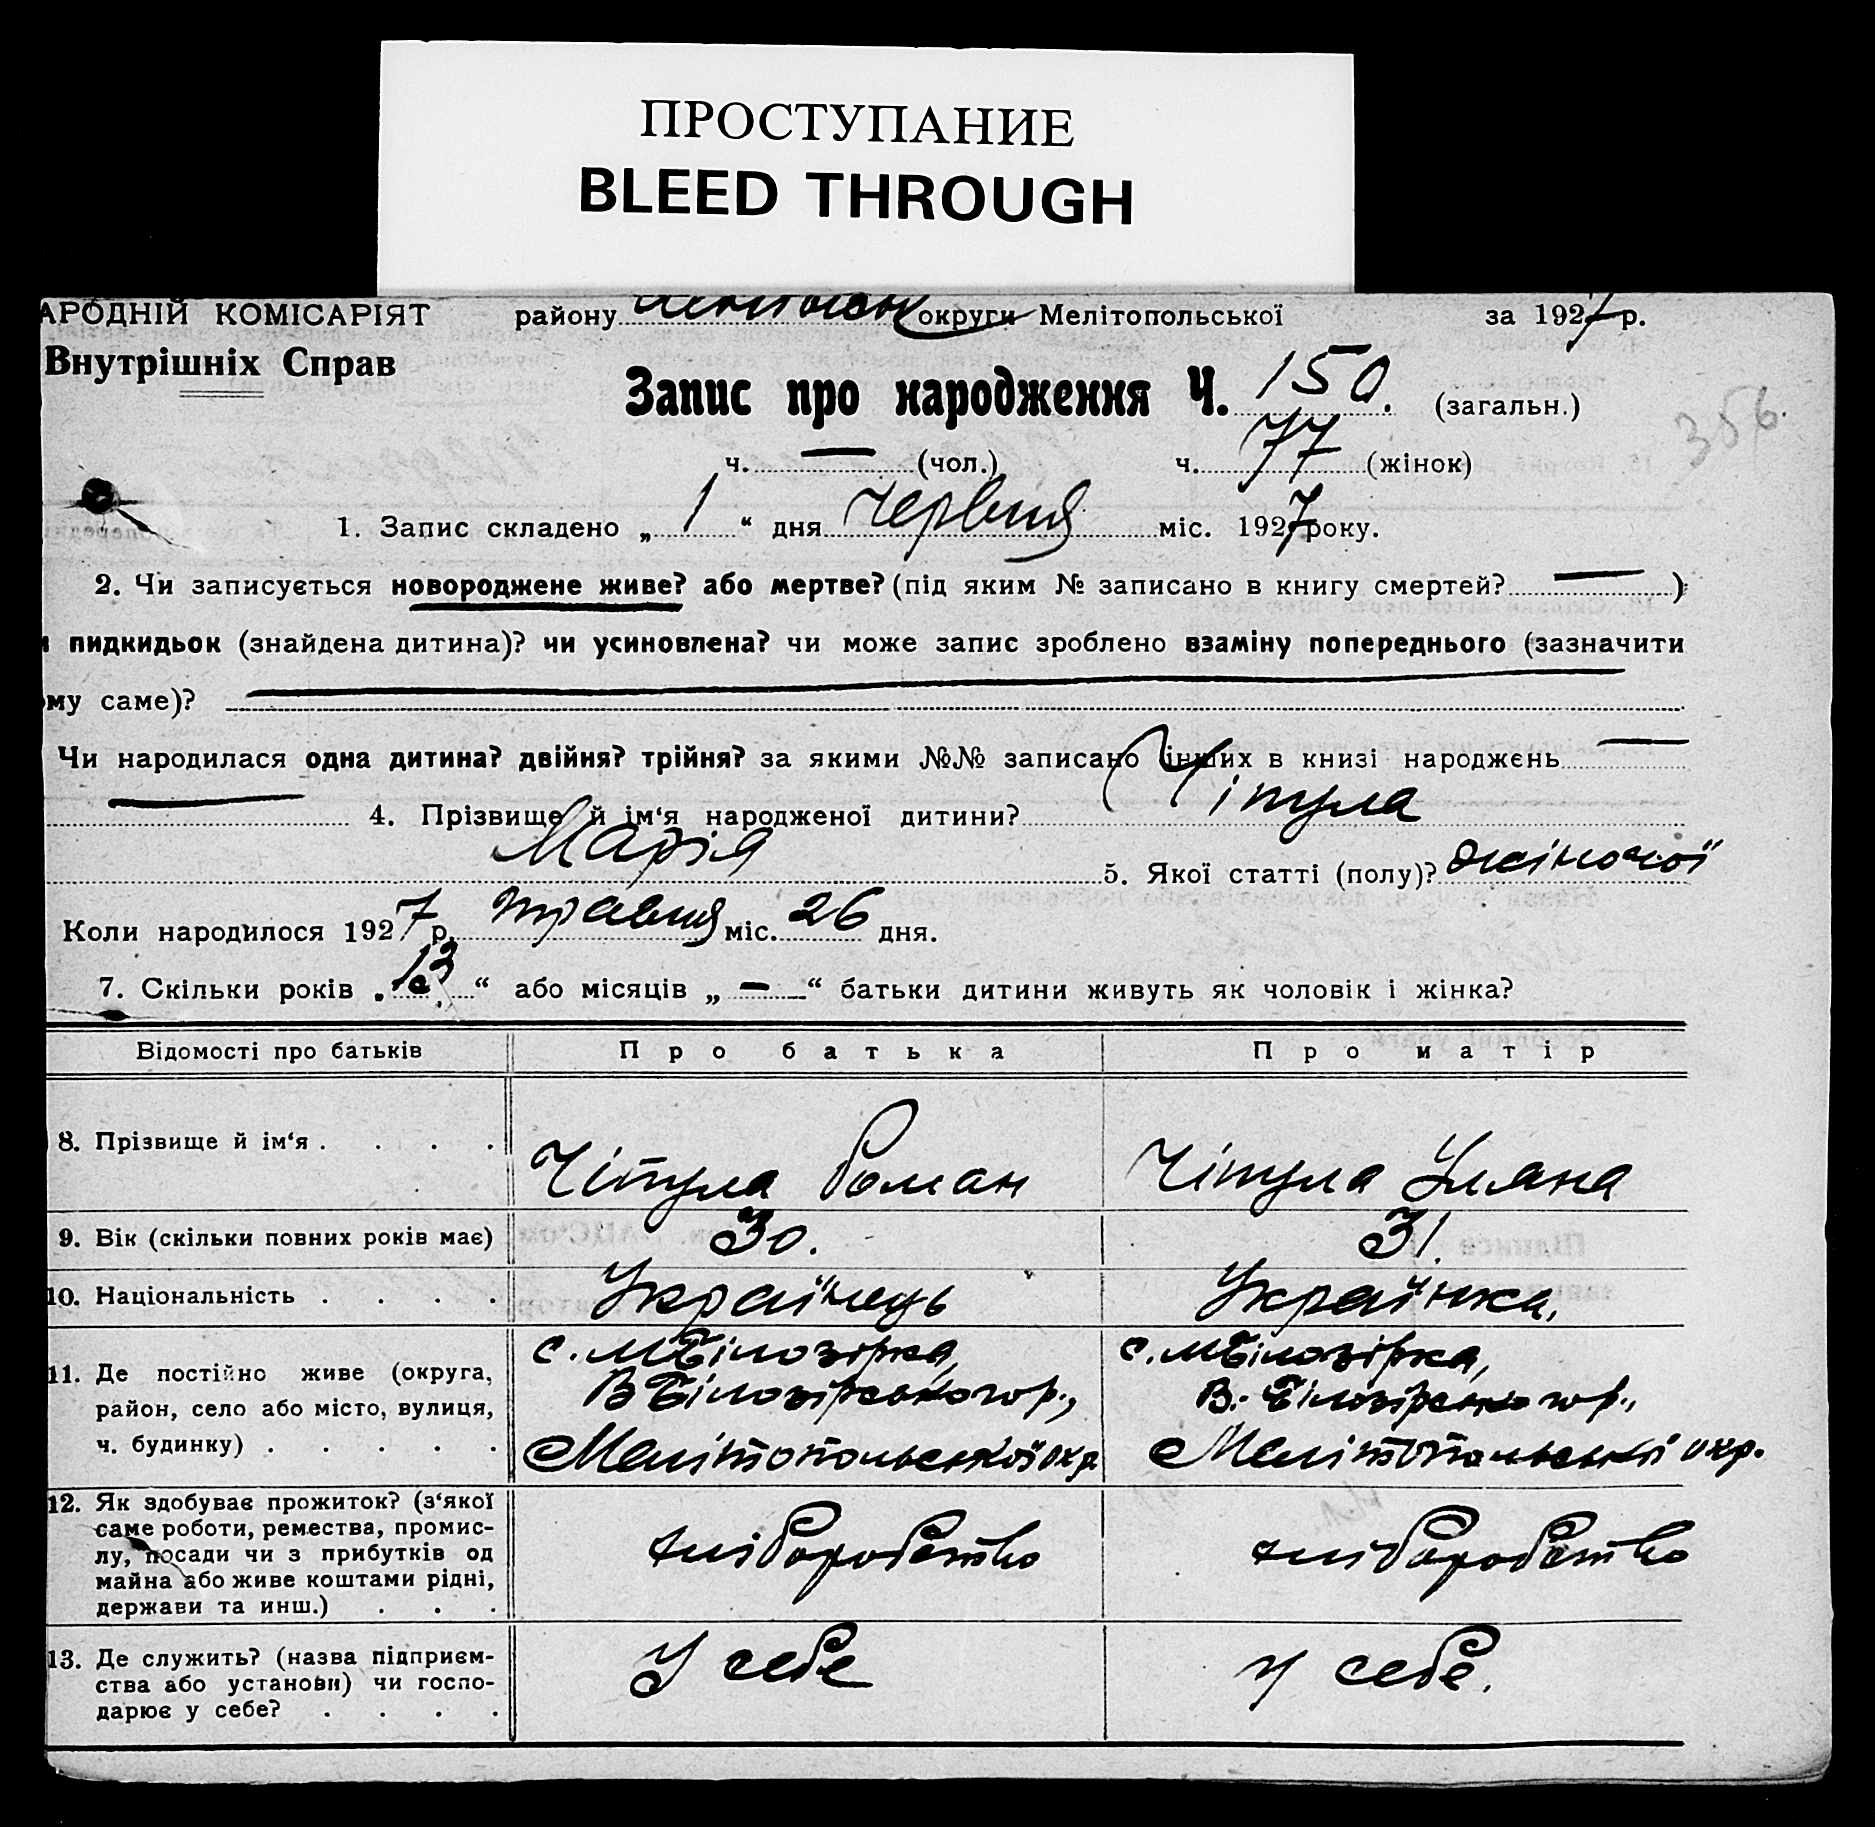 ПРОСТУПАНИЕ
BLEED THROUGH
АРОДНІЙ КОМІСАРІЯТ району округи Мелітопольської за 1927 р.
Внутрішніх Справ
Запис про народження Ч. 150. (загальн.)
356.
ч. — (чол.) ч. 77 (жінок)
1. Запис складено „ 1 “ дня червня міс. 1927 року.
2. Чи записується новороджене живе? або мертве? (під яким № записано в книгу смертей? — )
и пидкидьок (знайдена дитина)? чи усиновлена? чи може запис зроблено взаміну попереднього (зазначити
ому саме)? —
Чи народилася одна дитина? двійня? трійня? за якими №№ записано інших в книзі народжень —
4. Прізвище й ім‘я народженої дитини? Чіпула
Марія 5. Якої статті (полу)? жіночої
Коли народилося 1927 р. травня міс. 26 дня.
7. Скільки років „ 13 “ або місяців „ — “ батьки дитини живуть як чоловік і жінка?
Відомості про батьків Про батька Про матір
8. Прізвище й ім‘я . . . . Чіпула Роман Чіпула Уляна
9. Вік (скільки повних років має) 30. 31.
10. Національність . . . . Українець Українка,
11. Де постійно живе (округа, с. МБілозірка, с. МБілозірка,
район, село або місто, вулиця, ВБілозірського р., В. Білозірського р.,
ч. будинку) . . . . . Мелітопольської окр Мелітопольської окр.
12. Як здобуває прожиток? (з‘якої
саме роботи, ремества, промис-
лу, посади чи з прибутків од хліборобство хліборобство
майна або живе коштами рідні,
держави та инш.) . . .
13. Де служить? (назва підприєм- У себе у себе.
ства або установи) чи госпо-
дарює у себе? . . . .